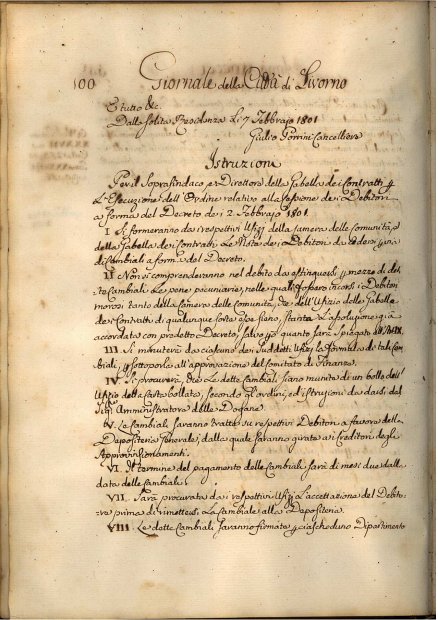 100 Giornale della Città di Livorno
E tutto &c.
Dalla solita Residenza li 7 Febbrajo 1801
Giulio Porrini Cancelliere
Istruzioni
Per il Soprasindaco, e Direttore della Gabella dei Contratti p
L'Esecuzione dell'Ordine relativo alla cessione dei Debitori
a forma del Decreto dei 2 Febbrajo 1801.
I. Si formeranno dai respettivi Ufizj della Camera delle Comunità, e
della Gabella dei Contratti le Note dei Debitori da cedersi in via
di Cambiali a forma del Decreto.
II. Non si comprenderanno nel debito da estinguersi p mezzo di det-
te Cambiali le pene pecuniarie, nelle quali fossero incorsi i Debitori
morosi tanto della Camera delle Comunità, che dell'Ufizio della Gabella
dei Contratti di qualunque sorte esse sieno, stante l'assoluzione già
accordata con predetto Decreto, salvo p quanto sarà spiegato
III. Si minuterà da ciascuno dei suddetti Ufizj la formula di tali Cam-
biali, p sottoporla all'approvazione del Comitato di Finanze.
IV. Si procurerà, che le dette Cambiali siano munite di un bollo dell'
Ufizio della Carta bollata, secondo gli ordini, ed istruzioni da darsi dal
Sig. Amministratore delle Dogane.
V. Le Cambiali saranno tratte su respettivi Debitori a favore della
Depositeria Generale, dalla quale saranno girate ai Creditori degli
Approvvisionamenti.
VI. Il termine del pagamento delle Cambiali sarà di mesi due dalla
data delle Cambiali.
VII. Sarà procurata dai respettivi Ufizj l'accettazione del Debito-
re prima di rimettersi la Cambiale alla Depositeria.
VIII. Le dette Cambiali saranno firmate p ciascheduno Dipartimento